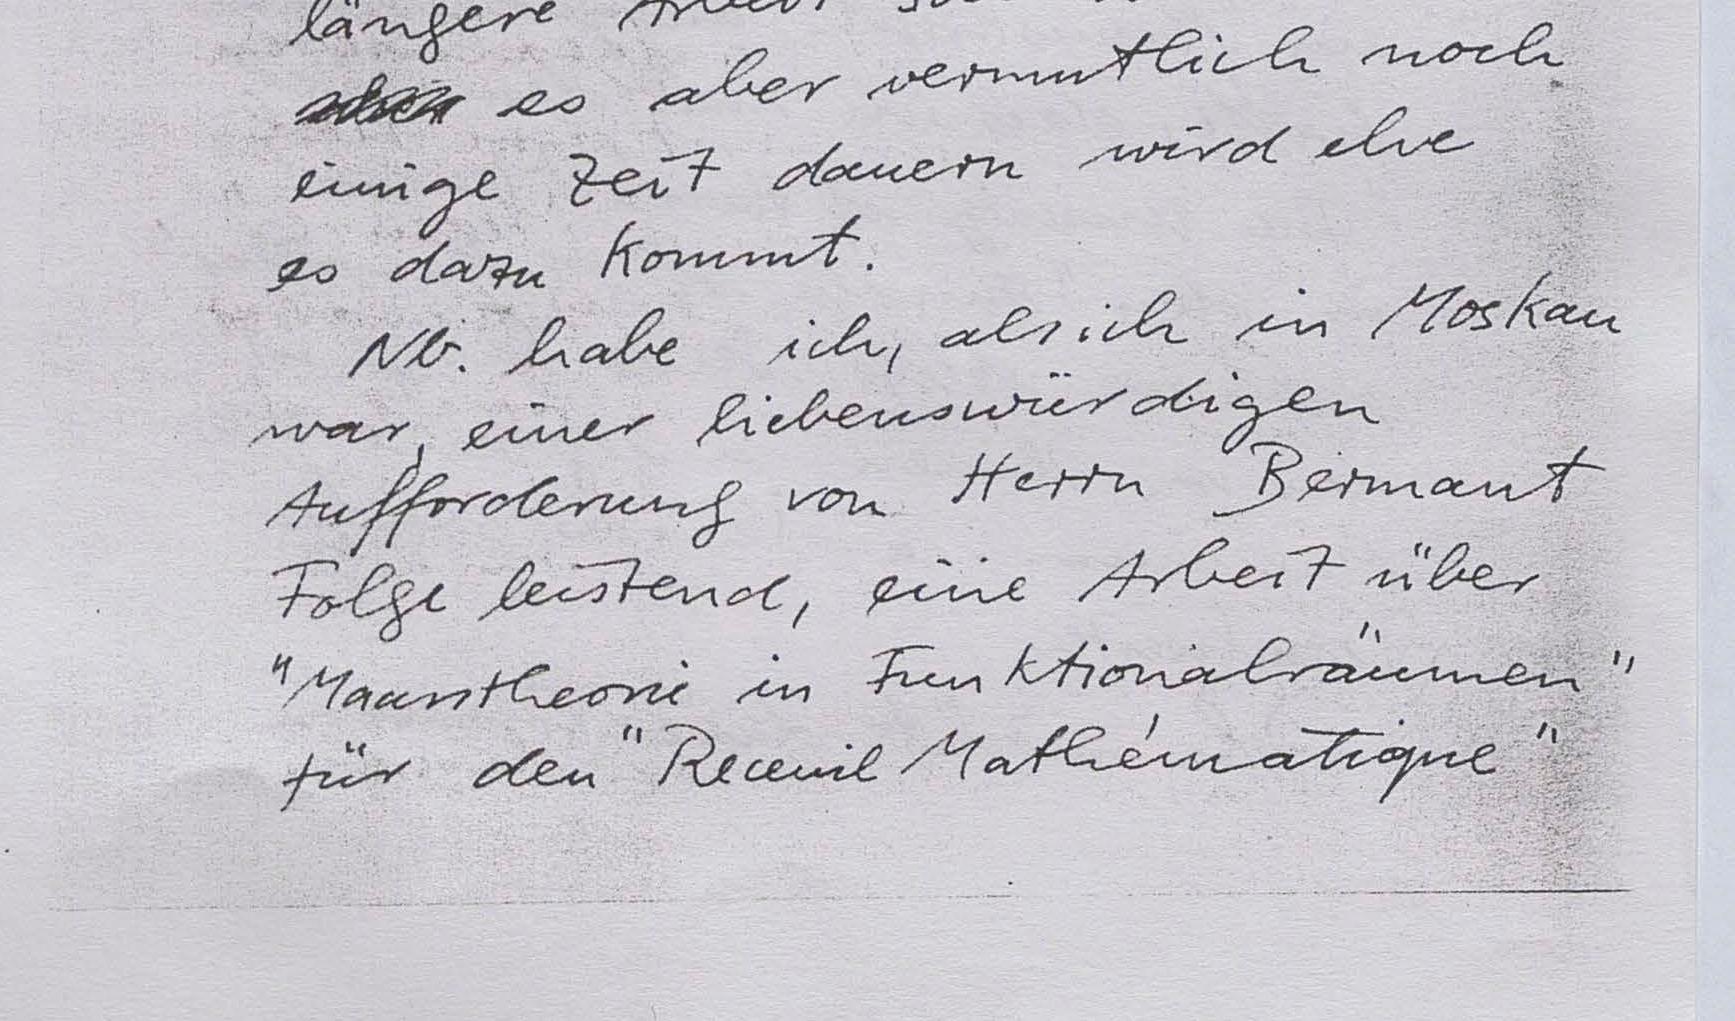 längere Arbeit
es aber vermutlich noch
einige Zeit dauern wird ehe
es dazu kommt.
Nb. habe ich, als ich in Moskau
war, einer liebenswürdigen
Aufforderung von Herrn Bermant
Folge leistend, eine Arbeit über
"Maasstheorie in Funktionalräumen"
für den "Recueil Mathématique"